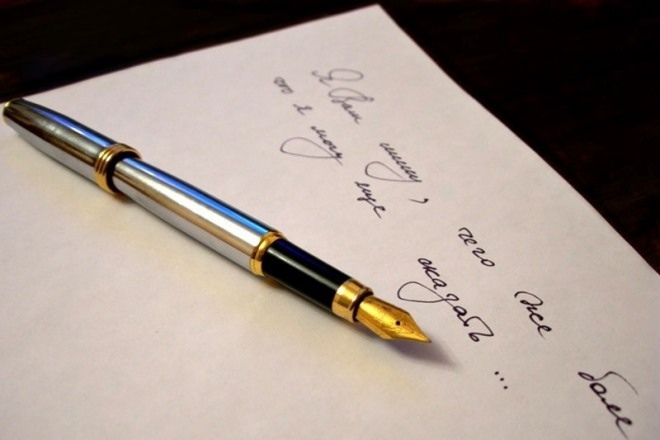 Я Вам пишу, чего же более
что я могу еще сказать...